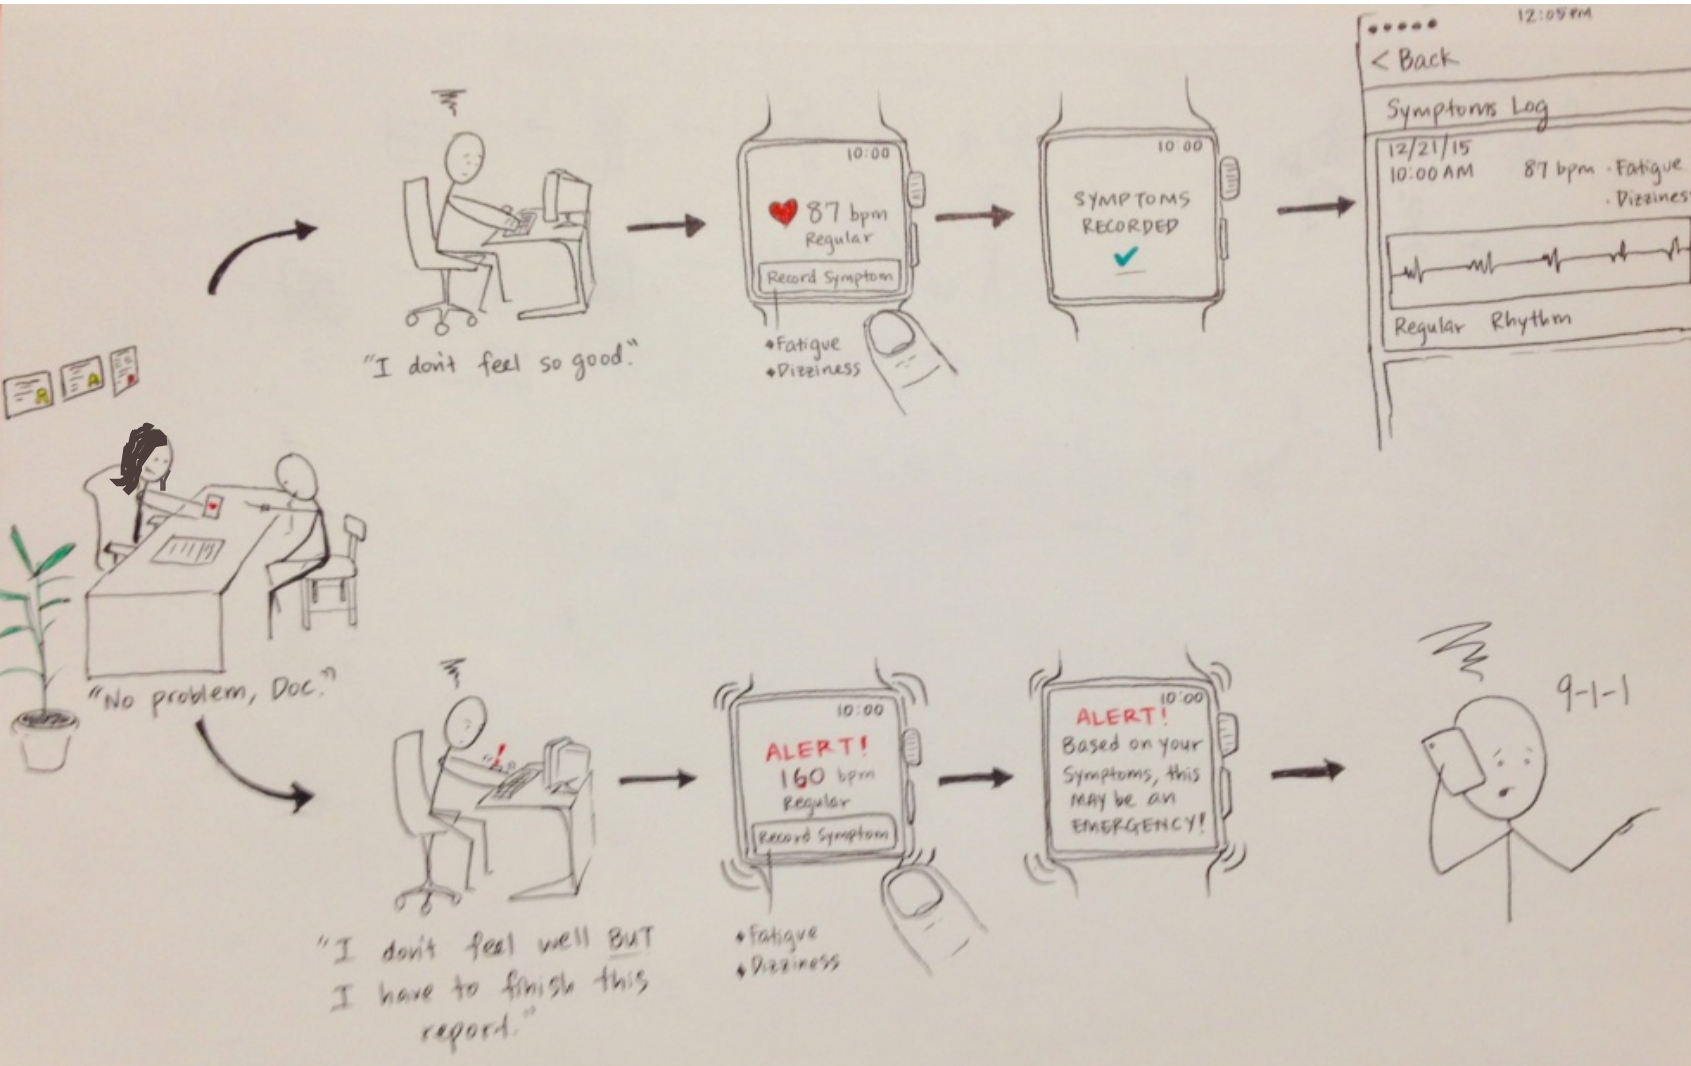 "No problem, Doc."
"I don't feel so good."
10:00
87 bpm
Regular
Record Symptom
Fatigue
Dizziness
10:00
SYMPTOMS
RECORDED
12:05 PM
< Back
Symptoms Log
12/21/15
10:00 AM 87 bpm · Fatigue
· Dizziness
Regular Rhythm
"I don't feel well BUT
I have to finish this
report."
10:00
ALERT!
160 bpm
Regular
Record Symptom
Fatigue
Dizziness
10:00
ALERT!
Based on your
Symptoms, this
MAY be an
EMERGENCY!
9-1-1